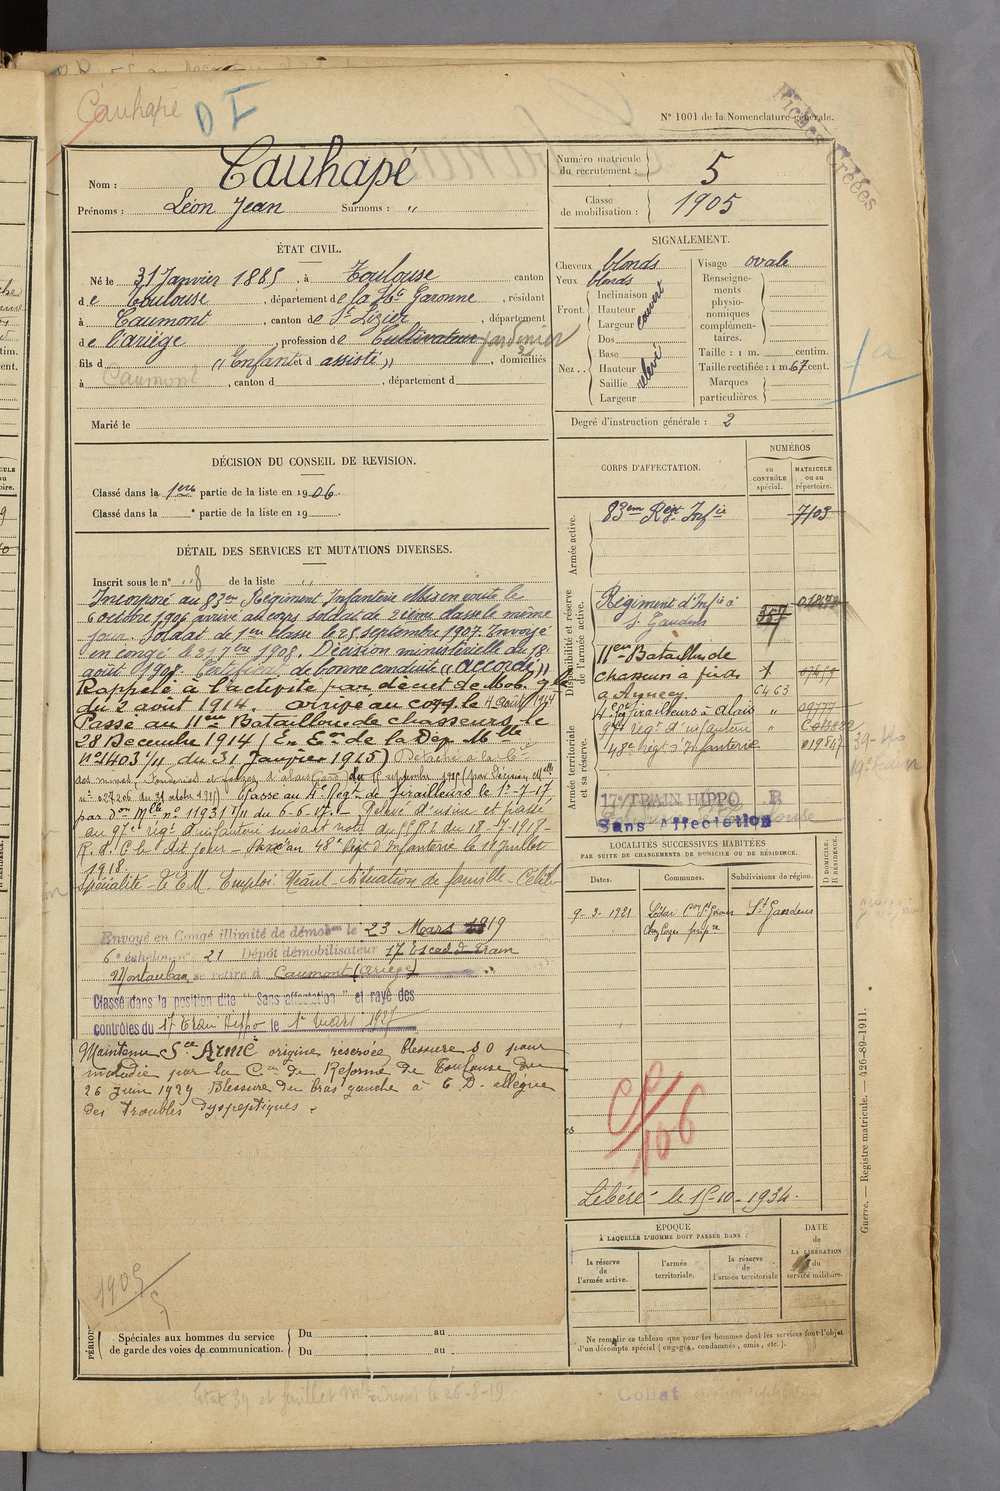 Cauhapé
D I
N° 1001 de la Nomenclature générale.
Fiches Créées
Nom : Cauhapé
Prénoms : Léon Jean Surnoms : "
Numéro matricule du recrutement : 5
Classe de mobilisation : 1905
ÉTAT CIVIL.
Né le 31 Janvier 1885, à Toulouse canton
de Toulouse, département de la Hte Garonne, résidant
à Caumont, canton de St Lizier, département
de l'ariège profession de Cultivateur jardinier
fils d " Enfant et d assisté " , domiciliés
à Caumont, canton d , département d
Marié le
SIGNALEMENT.
Cheveux blonds
Yeux blonds
Front. Inclinaison
Hauteur
Largeur
couvert
Nez.. Dos
Base
Hauteur
Saillie
Largeur
relevé
Visage ovale
Renseignements physionomiques complémentaires.
Taille : 1 m. centim.
Taille rectifiée : 1 m. 67 cent.
Marques particulières.
Degré d'instruction générale : 2
DÉCISION DU CONSEIL DE REVISION.
Classé dans la 1ere partie de la liste en 1906.
Classé dans la e partie de la liste en 19
DÉTAIL DES SERVICES ET MUTATIONS DIVERSES.
Inscrit sous le n° " 8 de la liste "
Incorporé au 83em Régiment Infanterie Mis en route le
6 octobre 1906 arrivé au corps soldat de 2ième classe le même
jour. Soldat de 1ere classe le 25 septembre 1907. Envoyé
en congé le 25 7bre 1908. Décision ministérielle du 18
août 1908. Certificat de bonne conduite "accordé"
Rappelé à l'activité par décret de Mob. gle
du 2 aout 1914. arrivé au corps le
Passé au 11eme Bataillon de chasseurs le
28 Decembre 1914 (En Eon de la Dep. Mlle
n° 1403/11 du 31 Janvier 1915) Détaché à la Cie
des mines, Fonderies et forges d'alais (Gard) du septembre 1915 (par Décision Mlle
n° 027206 du 31 octobre 1915). Passé au 4e Regt de Tirailleurs le 1er-7-17
par Don Mlle n° 11931 1/11 du 6.6.17. - d'usine et passé
au 97e régt d'infanterie suivant note du G.P.R.L du 18-7-1918-
R.d.C le dit jour - Passé au 48e Regt d'Infanterie le 18 Juillet
1918.
Spécialité - T.E.M. Emploi Néant - Situation de famille - Célib
Envoyé en Congé illimité de démobon le 23 Mars 1919
6e échelon n° 21 Dépôt démobilisateur 17 Escad du Train
Montauban, se retire à Caumont (ariège)
Classé dans la position dite "Sans affectation" et rayé des
contrôles du 17 Train Hippo le 1er mars 1927
Maintenu Sce Armé origine réservée, blessure S O pour
maladie par la Con de Réforme de Toulouse du
26 Juin 1929 Blessure du bras gauche à C. D. allègue
des troubles dyspeptiques.
1905
PÉRIODES
Spéciales aux hommes du service de garde des voies de communication.
Du au
Du au
CORPS D'AFFECTATION.
NUMÉROS
au CONTRÔLE spécial.
MATRICULE ou au répertoire.
Armée active.
83em Régt Infie 7103
Disponibilité et réserve de l'armée active.
Régiment d'Infie à St Gaudens 357
11em Bataillon de chasseurs à pied à Annecy
6463
4e regt Tirailleurs à Alais " 09777
97e régt d'infanterie "
48e Regt d'Infanterie 019847
Armée territoriale et sa réserve.
17e TRAIN HIPPO R
Sans affectation
LOCALITÉS SUCCESSIVES HABITÉES
PAR SUITE DE CHANGEMENTS DE DOMICILE OU DE RÉSIDENCE.
Dates. Communes. Subdivisions de région. D DOMICILE. R RÉSIDENCE.
9-3-1921 St Gaudens
CP/106
Libéré le 15-10-1934.
ÉPOQUE
À LAQUELLE L'HOMME DOIT PASSER DANS :
la réserve de l'armée active.
l'armée territoriale.
la réserve de l'armée territoriale
DATE de LA LIBÉRATION du service militaire.
Ne remplir ce tableau que pour les hommes dont les services font l'objet
d'un décompte spécial (engagés, condamnés, omis, etc.).
Guerre. — Registre matricule. — 426-89-1911.
Collat